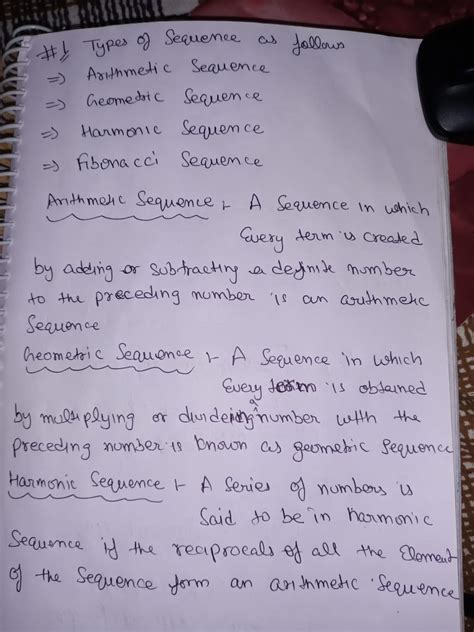 #1 Types of Sequence as follows
=> Arithmetic Sequence
=> Geometric Sequence
=> Harmonic Sequence
=> Fibonacci Sequence
Arithmetic Sequence :- A Sequence in which
Every term is created
by adding or subtracting a definite number
to the preceding number is an arithmetic
Sequence
Geometric Sequence :- A Sequence in which
Every term is obtained
by multiplying or divideing a number with the
preceding number is known as geometric Sequence
Harmonic Sequence :- A Series of numbers is
Said to be in harmonic
Sequence if the reciprocals of all the Element
of the Sequence form an arithmetic Sequence